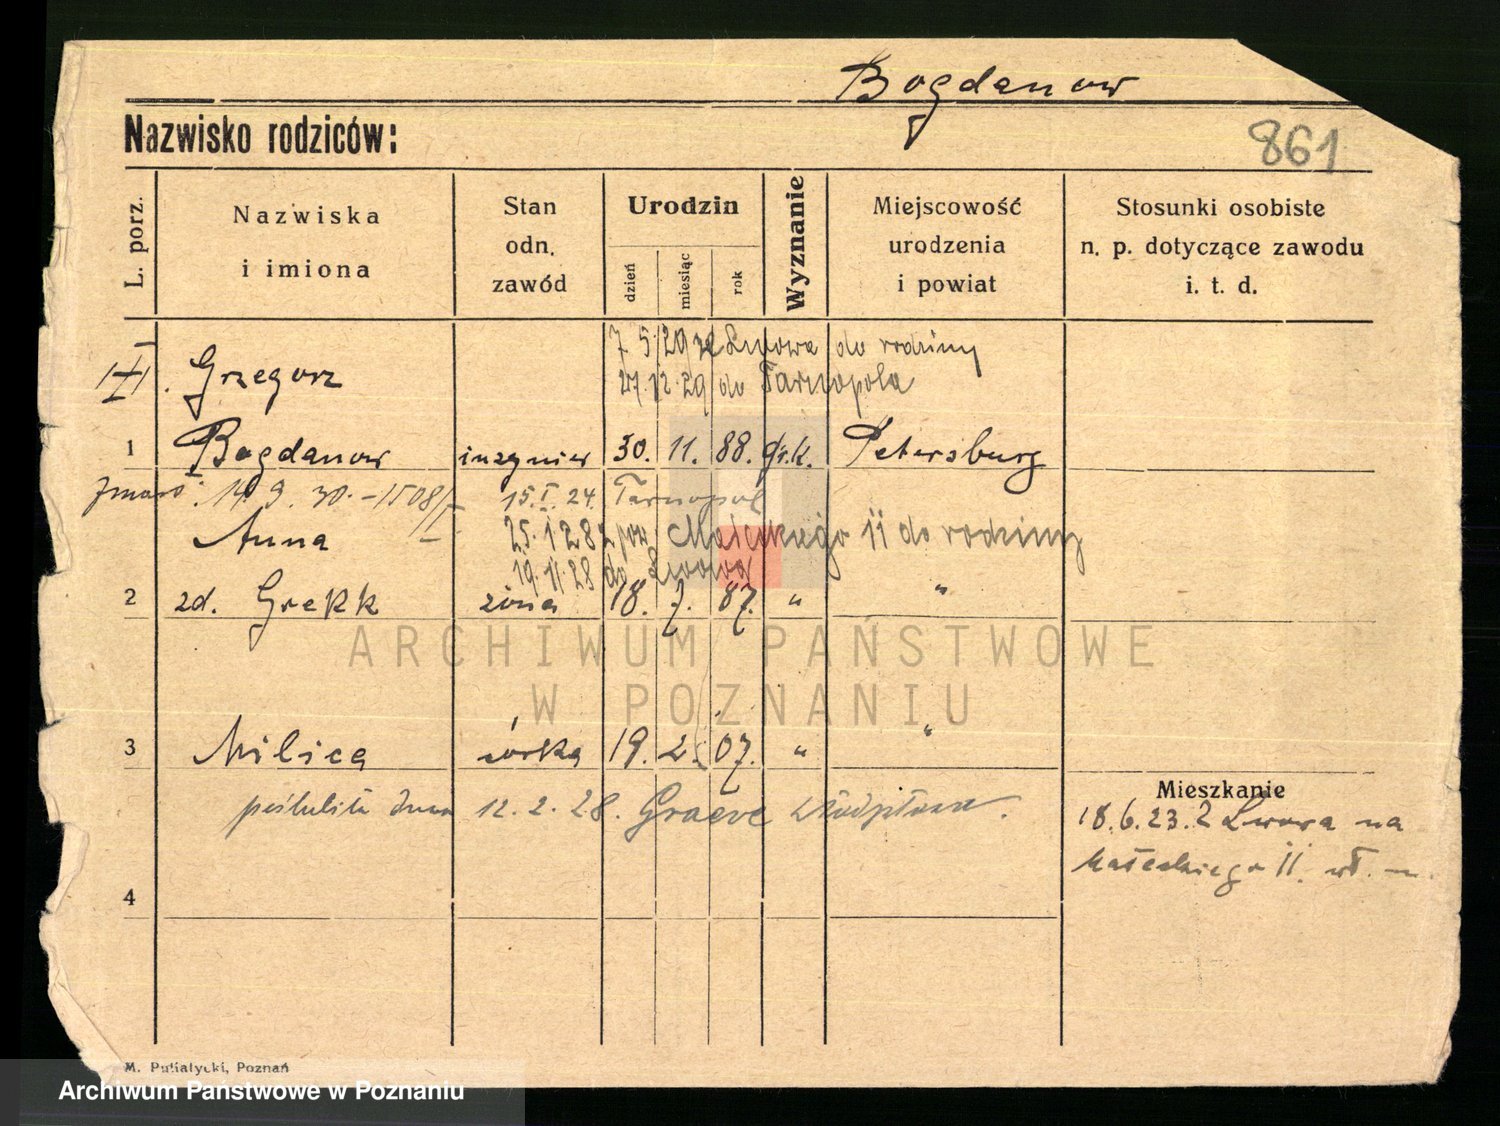 Bogdanow
Nazwisko rodziców:
861
L. porz.
Nazwiska
i imiona
Stan
odn.
zawód
Urodzin
dzień
miesiąc
rok
Wyznanie
Miejscowość
urodzenia
i powiat
Stosunki osobiste
n. p. dotyczące zawodu
i. t. d.
7 5. 29 ze Lwowa do rodziny
Grzegorz
27.12.29 do Tarnopola
1 Bogdanow inżynier 30. 11. 88. gr.k. Petersburg
14. 9. 30. - 1508/I 15. I. 24. Tarnopol
Anna 25. 1 28 z Małeckiego 11 do rodziny
19. 11. 28 do Lwowa
2 zd. Grekk żona 18. 7. 87. " "
ARCHIWUM PAŃSTWOWE
W POZNANIU
3 Milica córka 19. 2. 07. " "
poślubiła 12. 2. 28. Graeve
Mieszkanie
18. 6. 23. z Lwowa na
Małeckiego 11.
4
M. Putiatycki, Poznań
Archiwum Państwowe w Poznaniu